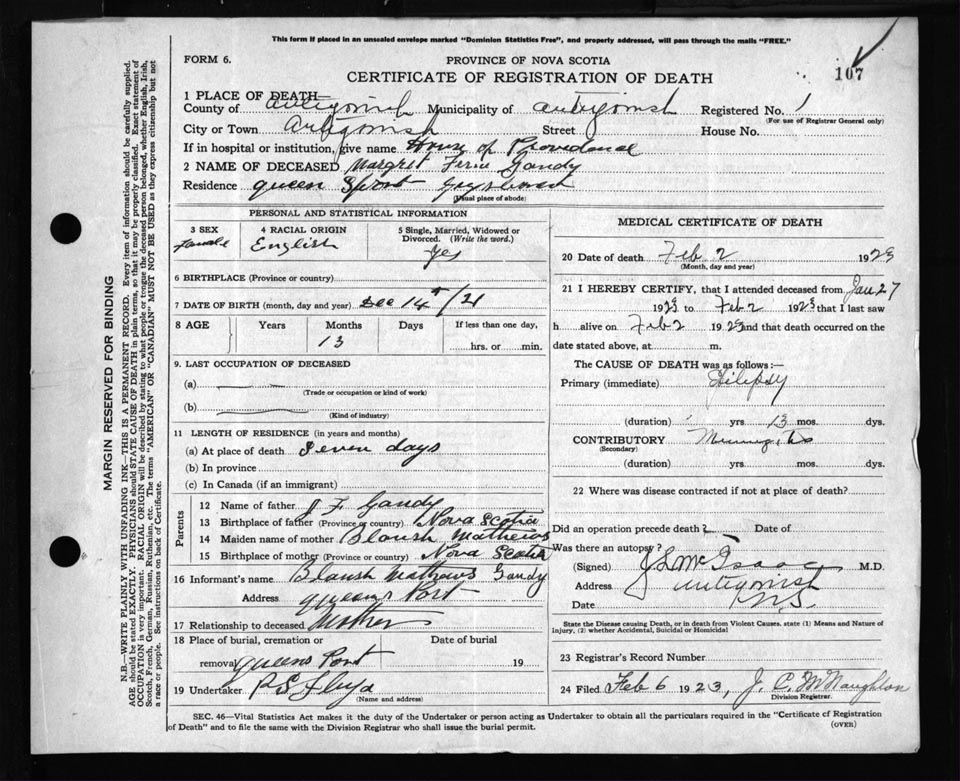 This form if placed in an unsealed envelope marked "Dominion Statistics Free", and property addressed, will pass through the mails "FREE."
FORM 6.
PROVINCE OF NOVA SCOTIA
CERTIFICATE OF REGISTRATION OF DEATH
107
1 PLACE OF DEATH
County of Antigonish Municipality of Antigonish Registered No. 1
(For use of Registrar General only)
City or Town Antigonish Street House No.
If in hospital or institution, give name House of Providence
2 NAME OF DECEASED Margret Ferne Gandy
Residence queen Sport Guysboro
(Usual place of abode)
PERSONAL AND STATISTICAL INFORMATION
3 SEX 4 RACIAL ORIGIN 5 Single, Married, Widowed or Divorced. (Write the word.)
female English yes
6 BIRTHPLACE (Province or country)
7 DATE OF BIRTH (month, day and year) Dec 14th/21
8 AGE Years Months Days If less than one day,
13 hrs. or min.
9. LAST OCCUPATION OF DECEASED
(a)
(Trade or occupation or kind of work)
(b)
(Kind of industry)
11 LENGTH OF RESIDENCE (in years and months)
(a) At place of death Seven days
(b) In province
(c) In Canada (if an immigrant)
Parents
12 Name of father J F Gandy
13 Birthplace of father (Province or country) Nova Scotia
14 Maiden name of mother Blansh Mathews
15 Birthplace of mother (Province or country) Nova Scotia
16 Informant's name Blansh Mathews Gandy
Address queens Port
17 Relationship to deceased Mother
18 Place of burial, cremation or Date of burial
removal queens Port 19
19 Undertaker P S
(Name and address)
MEDICAL CERTIFICATE OF DEATH
20 Date of death Feb 2 1923
(Month, day and year)
21 I HEREBY CERTIFY, that I attended deceased from Jan 27
1923 to Feb 2 1923 that I last saw
h alive on Feb 2 1923 and that death occurred on the
date stated above, at m.
The CAUSE OF DEATH was as follows:
Primary (immediate)
(duration) yrs 13 mos. dys.
CONTRIBUTORY Meningitis
(Secondary)
(duration) yrs. mos. dys.
22 Where was disease contracted if not at place of death?
Did an operation precede death? Date of
Was there an autopsy?
(Signed) J L McIsaac M.D.
Address Antigonish
Date N.S.
State the Disease causing Death, or in death from Violent Causes, state (1) Means and Nature of
Injury, (2) whether Accidental, Suicidal or Homicidal
23 Registrar's Record Number
24 Filed Feb 6 1923, J. C. McNaughton
Division Registrar.
SEC. 46—Vital Statistics Act makes it the duty of the Undertaker or person acting as Undertaker to obtain all the particulars required in the "Certificate of Registration
of Death" and to file the same with the Division Registrar who shall issue the burial permit.
(OVER)
MARGIN RESERVED FOR BINDING
N.B.—WRITE PLAINLY WITH UNFADING INK—THIS IS A PERMANENT RECORD. Every item of information should be carefully supplied.
AGE should be stated EXACTLY. PHYSICIANS should STATE CAUSE OF DEATH in plain terms, so that it may be properly classified. Exact statement of
OCCUPATION is very important. RACIAL ORIGIN will be described by stating to what people or tongue the deceased person belonged, whether English, Irish,
Scotch, French, German, Russian, Ruthenian, etc. The terms "AMERICAN" OR "CANADIAN" MUST NOT BE USED as they express citizenship but not
a race or people. See instructions on back of Certificate.